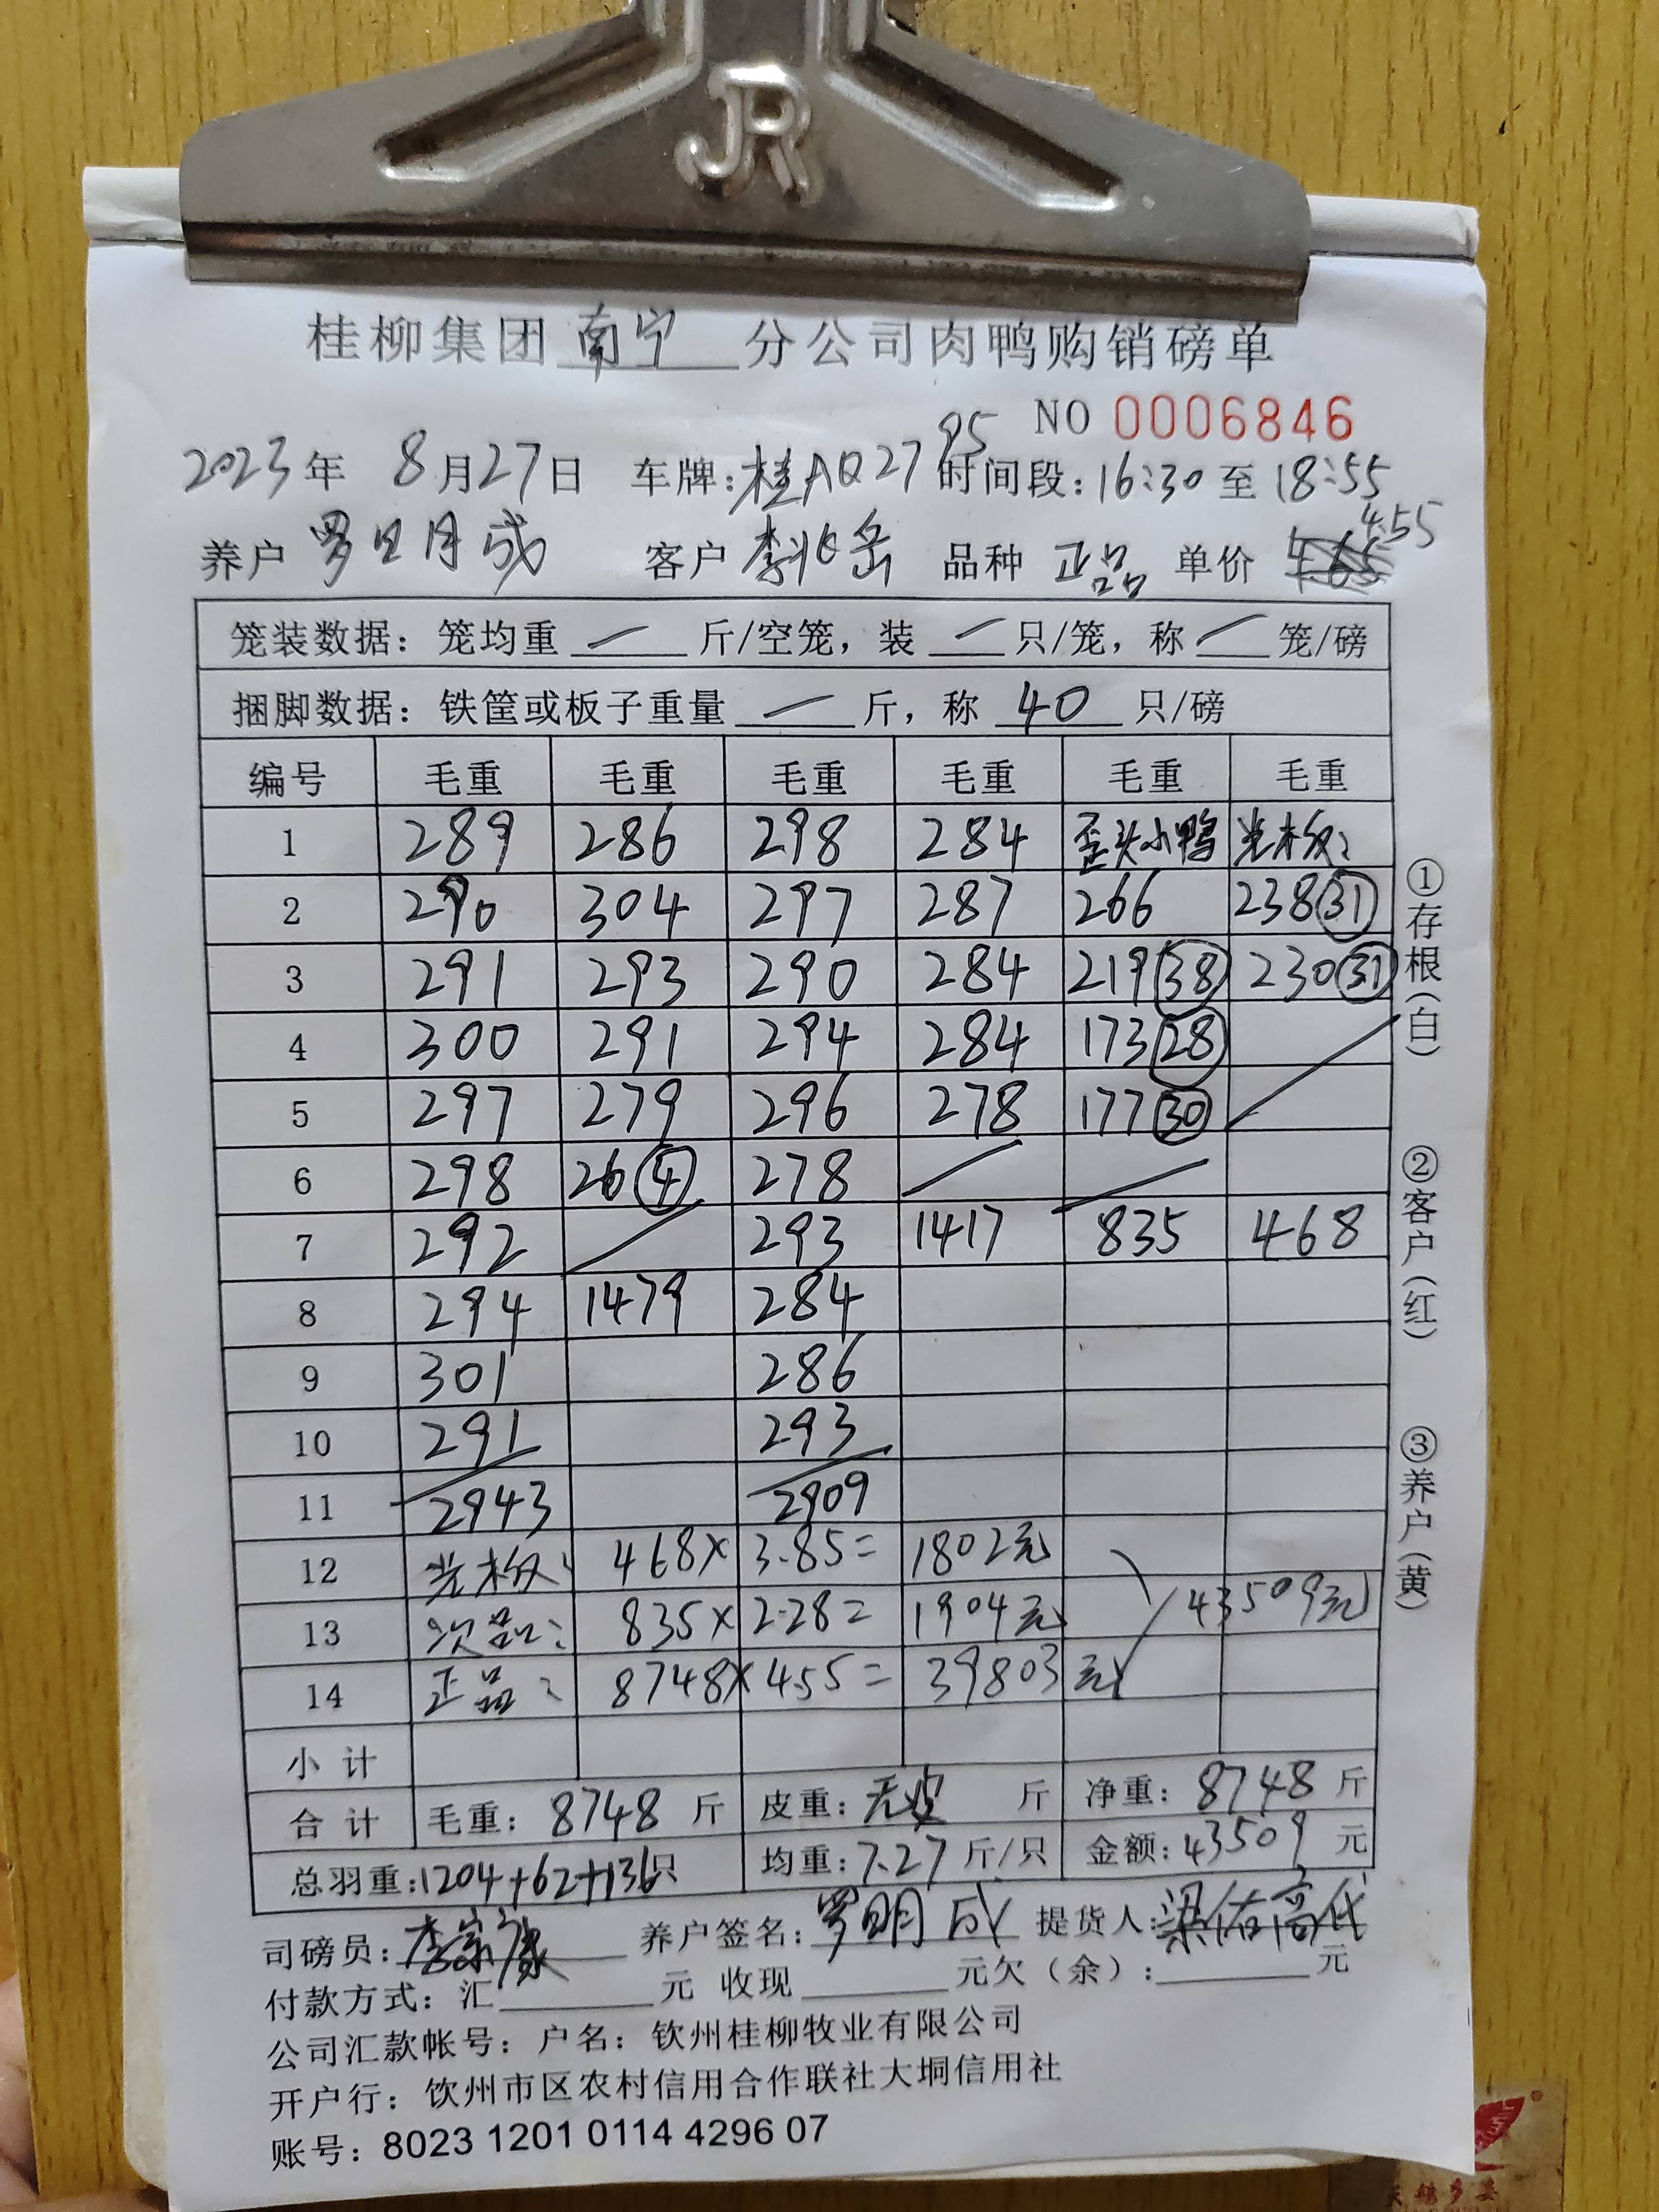 JR
桂柳集团 南宁 分公司肉鸭购销磅单
NO 0006846
2023年 8月27日 车牌:桂AQ2795 时间段:16:30 至 18:55
养户 罗明成 客户 李兆岳 品种 正品 单价 4.55
笼装数据: 笼均重 — 斤/空笼, 装 — 只/笼, 称 — 笼/磅
捆脚数据: 铁筐或板子重量 — 斤, 称 40 只/磅
编号 毛重 毛重 毛重 毛重 毛重 毛重
1 289 286 298 284 歪头小鸭 光板:
2 290 304 297 287 266 238 31
3 291 293 290 284 219 38 230 31
4 300 291 294 284 173 28
5 297 279 296 278 177 30
6 298 26 4 278
7 292 293 1417 835 468
8 294 1479 284
9 301 286
10 291 293
11 2943 2909
12 光板: 468× 3.85= 1802元
13 次品: 835× 2.28= 1904元 43509元
14 正品: 8748× 4.55= 39803元
小计
合计 毛重: 8748 斤 皮重: 无皮 斤 净重: 8748 斤
总羽重:1204+62+136只 均重:7.27斤/只 金额:43509 元
司磅员: 李宗康 养户签名: 罗明成 提货人:梁佑高代
付款方式: 汇 元 收现 元欠(余): 元
公司汇款帐号: 户名: 钦州桂柳牧业有限公司
开户行: 钦州市区农村信用合作联社大垌信用社
账号: 8023 1201 0114 4296 07
①存根(白) ②客户(红) ③养户(黄)